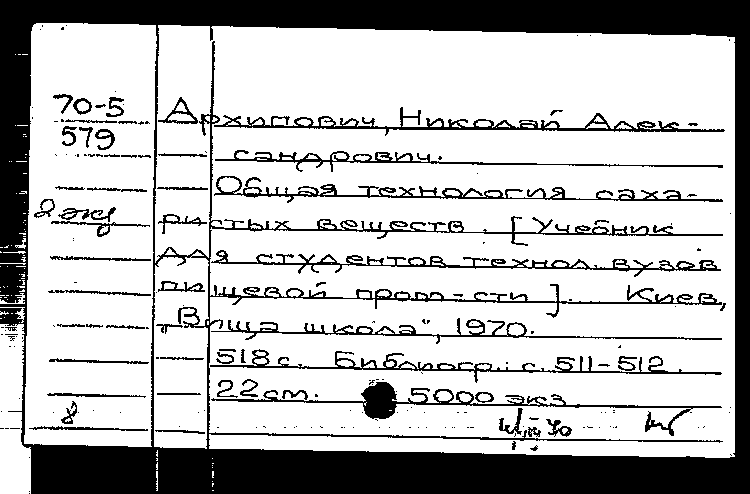 70-5
579
2 экз
Архипович, Николай Алек-
сандрович.
Общая технология саха-
ристых веществ. [Учебник
для студентов технол. вузов
пищевой пром-сти]. Киев,
„Вища школа", 1970.
518 с. Библиогр.: с. 511-512.
22 см. 5000 экз.
8